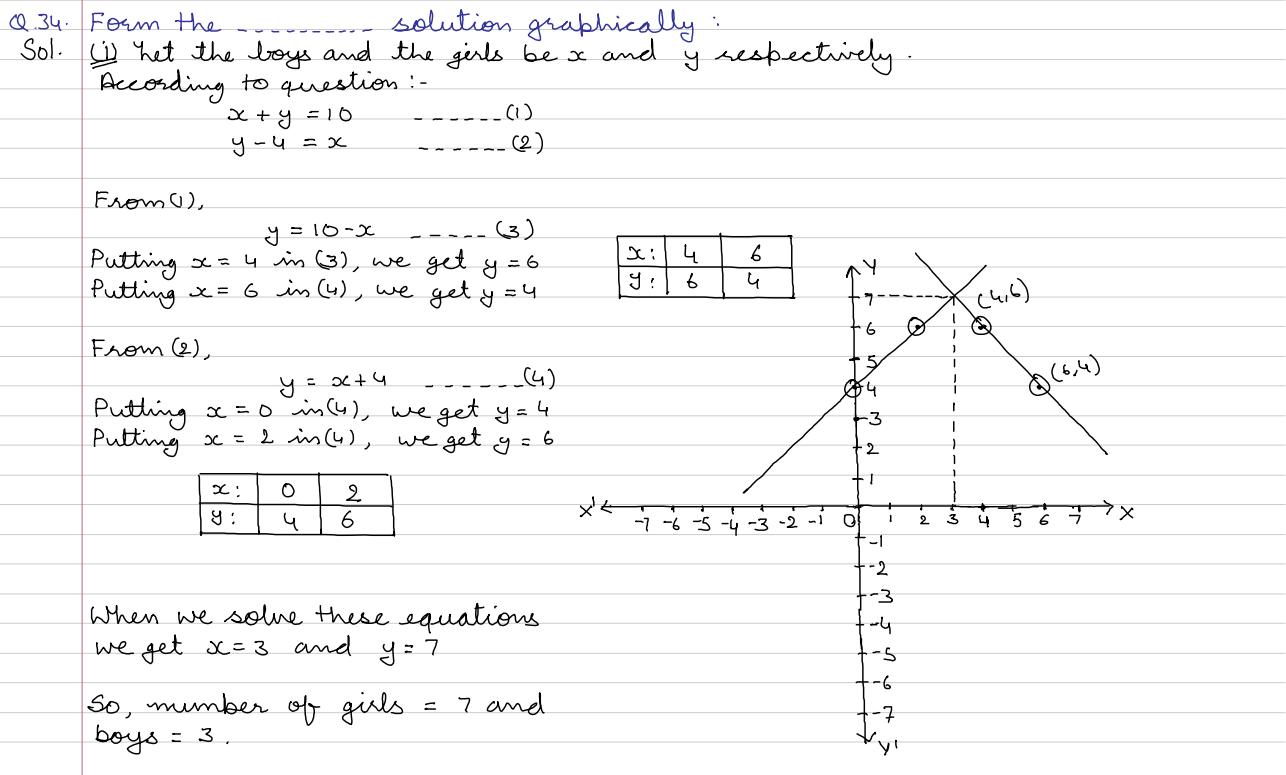 Q.34. Form the ---------- solution graphically :
Sol. (i) Let the boys and the girls be x and y respectively.
According to question :-
x + y = 10 ------(1)
y - 4 = x ------(2)
From (1),
y = 10 - x -----(3)
Putting x = 4 in (3), we get y = 6
Putting x = 6 in (4), we get y = 4
x: 4 6
y: 6 4
From (2),
y = x+4 ------(4)
Putting x = 0 in (4), we get y = 4
Putting x = 2 in (4), we get y = 6
x: 0 2
y: 4 6
When we solve these equations
we get x = 3 and y = 7
So, number of girls = 7 and
boys = 3.
Y
7
(4,6)
6
5
(6,4)
4
3
2
1
X' -7 -6 -5 -4 -3 -2 -1 0 1 2 3 4 5 6 7 X
-1
-2
-3
-4
-5
-6
-7
Y'